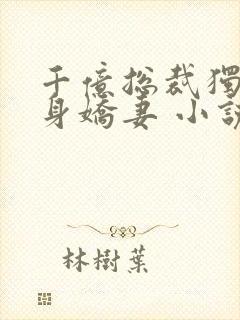 千億总裁獨
身嬌妻 小說
林樹葉